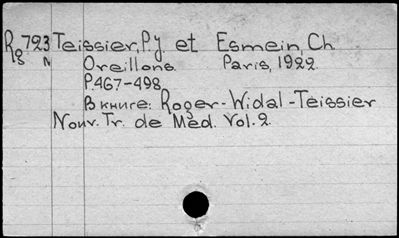 Rg 723 Teissier, P.y et Esmein, Ch.
8 N Oreillons. Paris, 1922.
P.467-498.
В книге: Roger-Widal-Teissier
Nouv. Tr. de Med. Vol. 2.